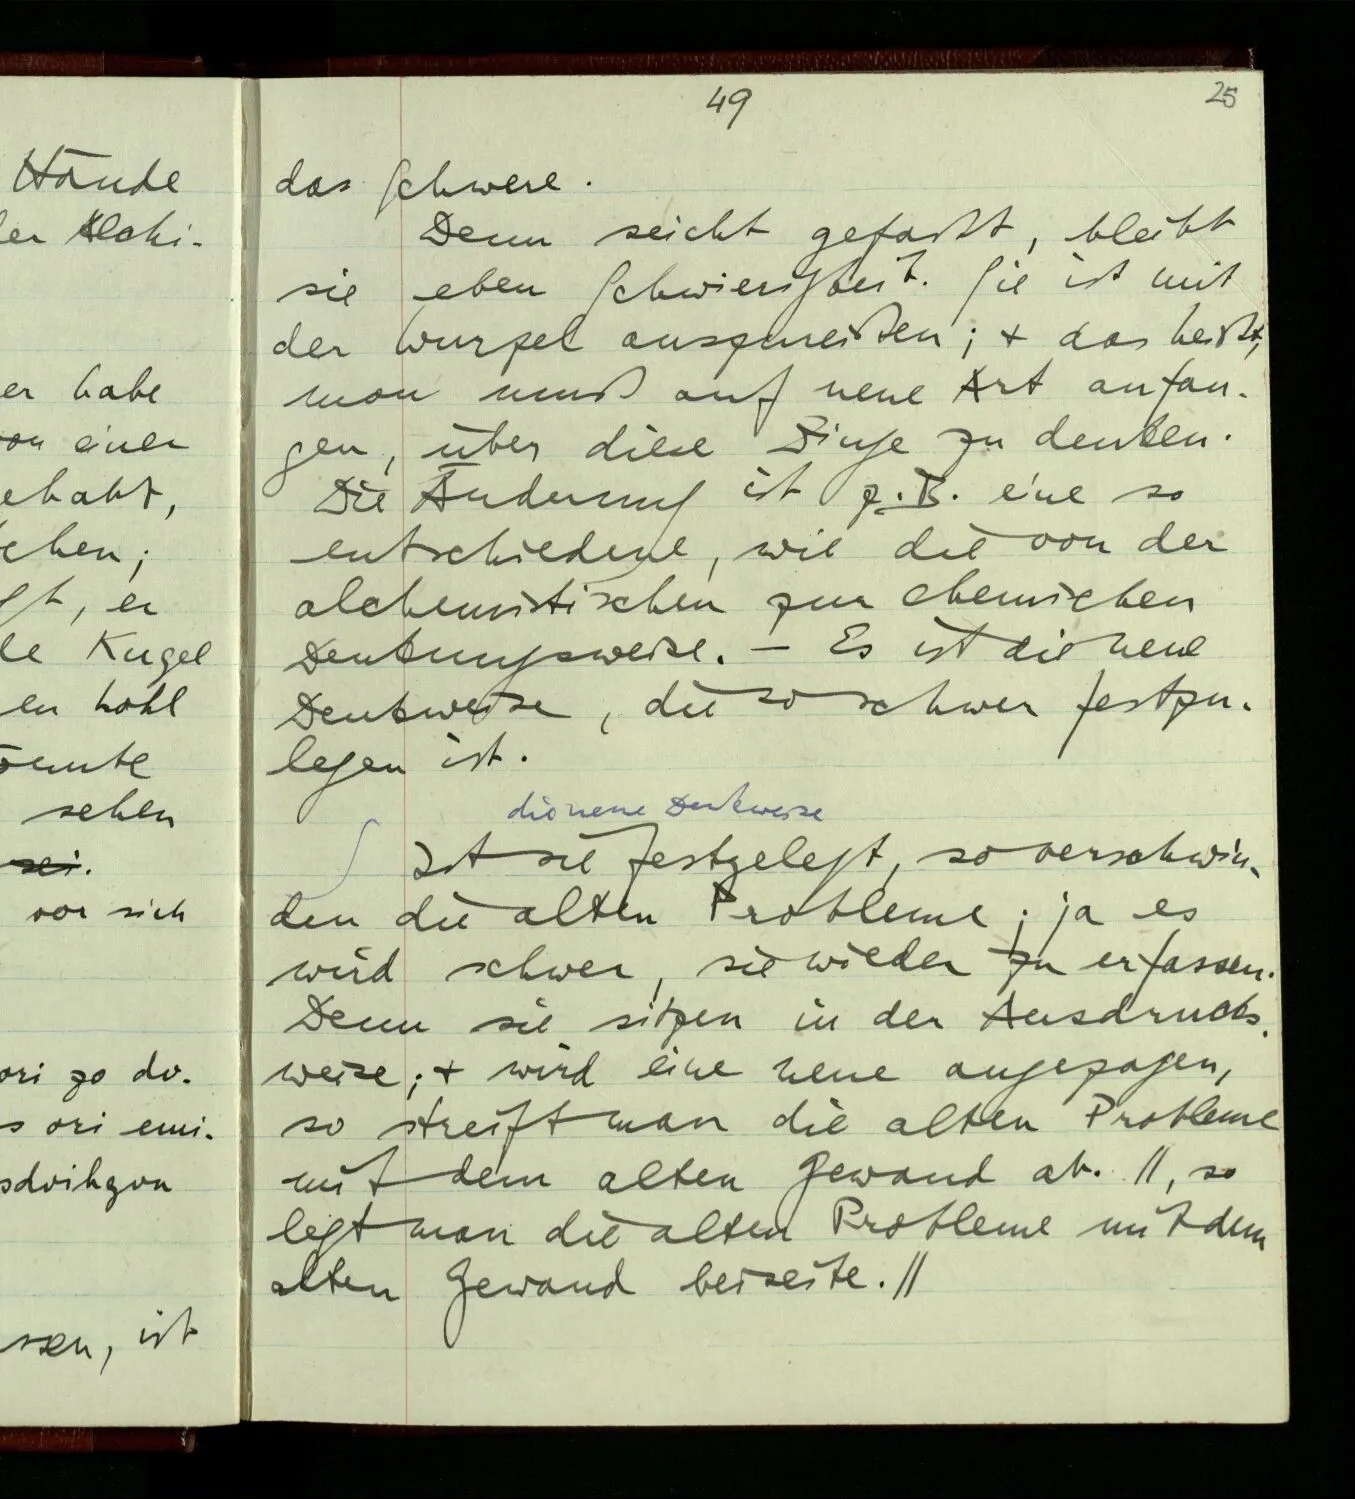 Hände
er Alchi-
er habe
von einer
ehabt,
chen;
gt, er
le Kugel
en hohl
önnte
sehen
sei.
vor sich
ori zo dv.
s ori emi.
sdvihgvn
ssen, ist
49
25
das Schwere.
Denn seicht gefaßt, bleibt
sie eben Schwierigkeit. Sie ist mit
der Wurzel auszureißen; + das heißt,
man muß auf neue Art anfan-
gen, über diese Dinge zu denken.
Die Änderung ist z.B. eine so
entschiedene, wie die von der
alchemistischen zur chemischen
Denkungsweise. – Es ist die neue
Denkweise, die so schwer festzu-
legen ist.
die neue Denkweise
∫ Ist sie festgelegt, so verschwin-
den die alten Probleme; ja es
wird schwer, sie wieder zu erfassen.
Denn sie sitzen in der Ausdrucks-
weise; + wird eine neue angezogen,
so streift man die alten Probleme
mit dem alten Gewand ab. //, so
legt man die alten Probleme mit dem
alten Gewand beiseite. //